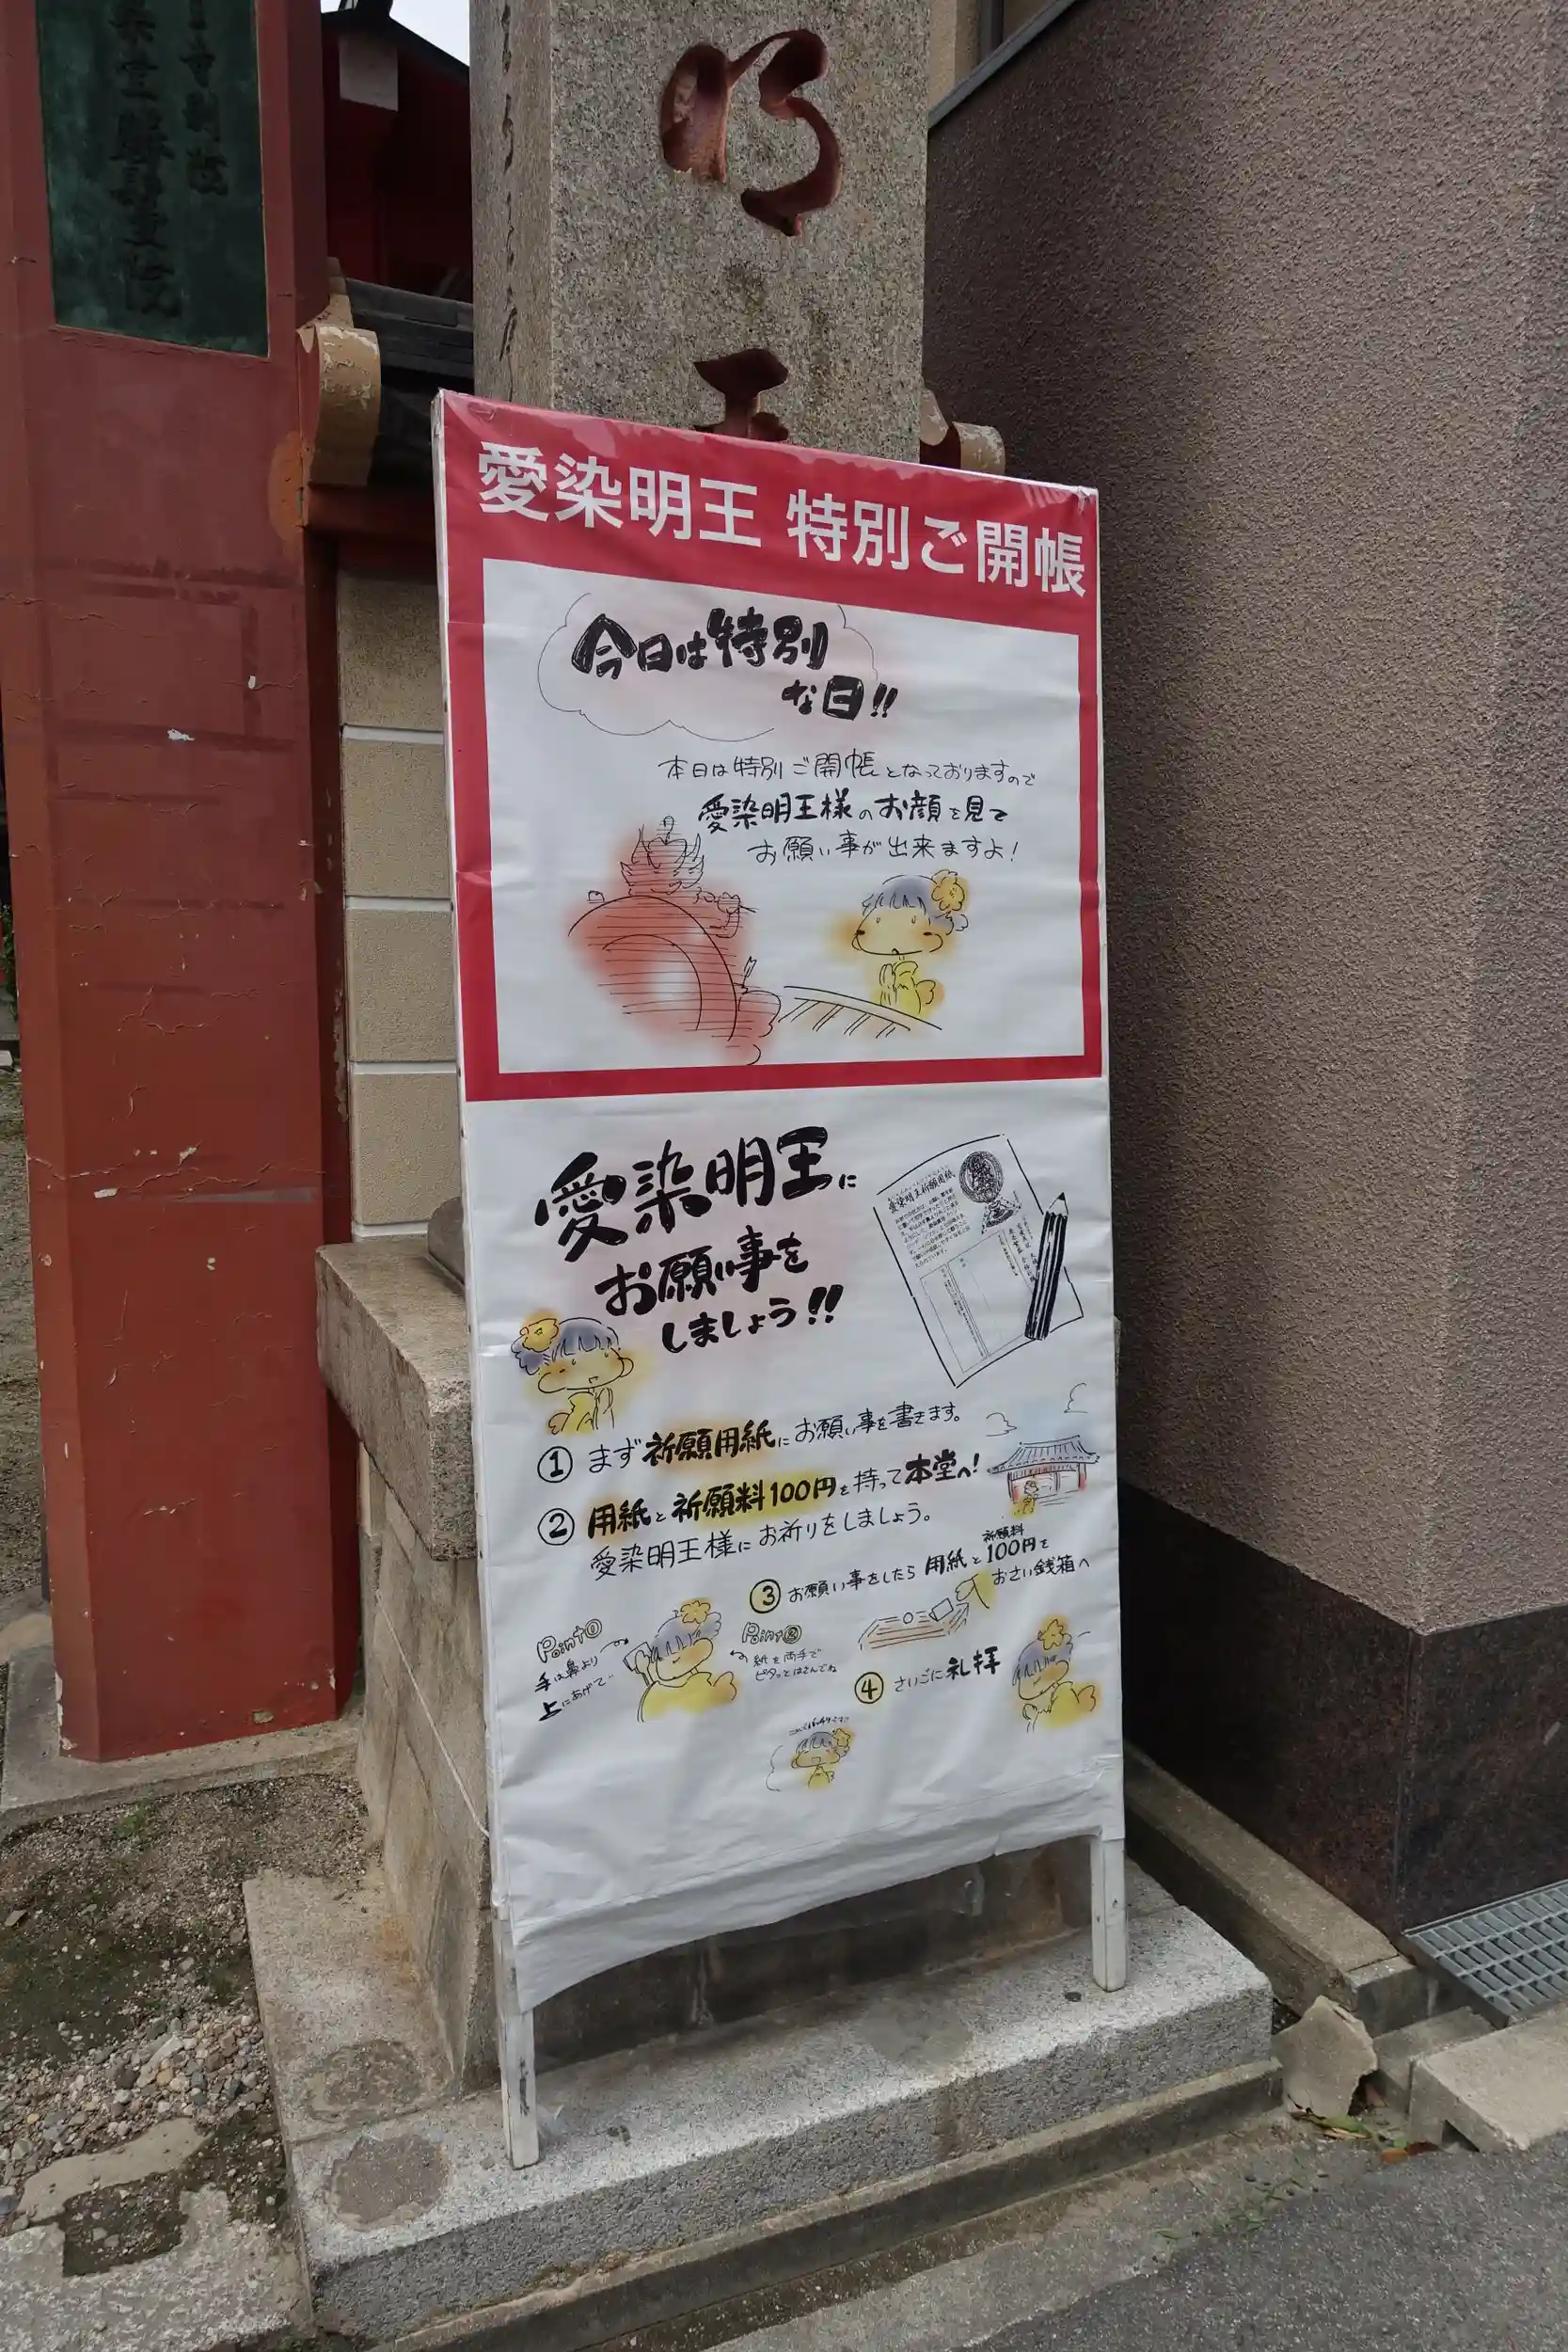 明
王
勝鬘院
愛染明王 特別ご開帳
今日は特別
な日!!
本日は特別ご開帳となっておりますので
愛染明王様のお顔を見て
お願い事が出来ますよ!
愛染明王に
お願い事を
しましょう!!
愛染明王祈願用紙
① まず祈願用紙にお願い事を書きます。
② 用紙と祈願料100円を持って本堂へ!
愛染明王様にお祈りをしましょう。
③ お願い事をしたら用紙と祈願料100円を
おさい銭箱へ
Point①
手は鼻より
上にあげて
Point②
紙を両手で
ピタッとはさんでね
④ さいごに礼拝